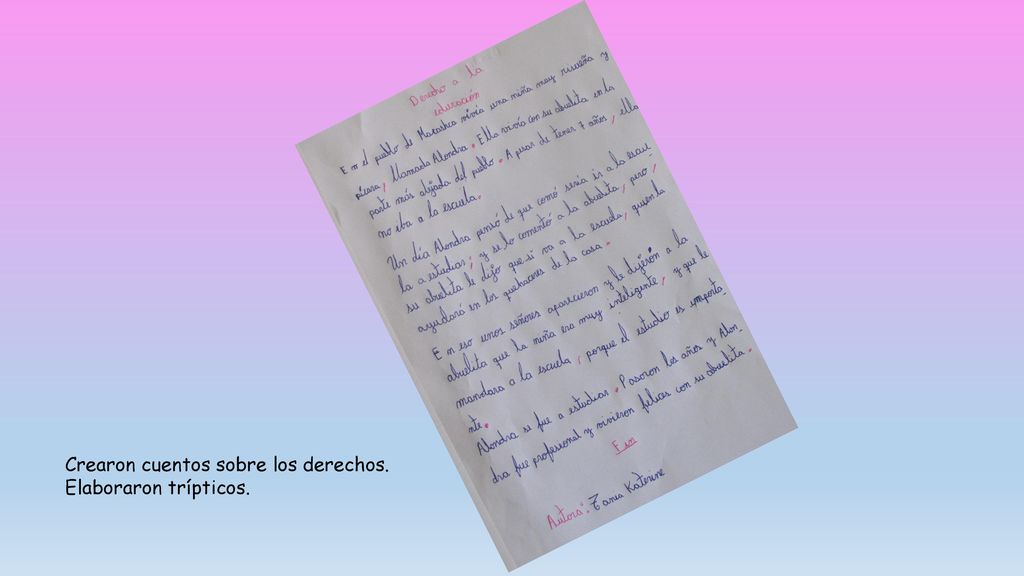 Derecho a la
educación
En el pueblo de Macashca vivía una niña muy risueña y
pícara, llamada Alondra. Ella vivía con su abuelita en la
parte más alejada del pueblo. A pesar de tener 7 años, ella
no iba a la escuela.
Un día Alondra pensó de que comó seria ir a la escue-
la a estudiar; y se lo comentó a la abuelita, pero,
su abuelita le dijo que si va a la escuela, quien la
ayudará en los quehaceres de la casa.
En eso unos señores aparecieron y le dijerón a la
abuelita que la niña era muy inteligente, y que le
mandara a la escuela, porque el estudio es importa-
nte.
Alondra se fue a estudiar. Pasaron los años y Alon-
dra fue profesional y vivieron felices con su abuelita.
Fin
Autora: Tania Katerine
Crearon cuentos sobre los derechos.
Elaboraron trípticos.